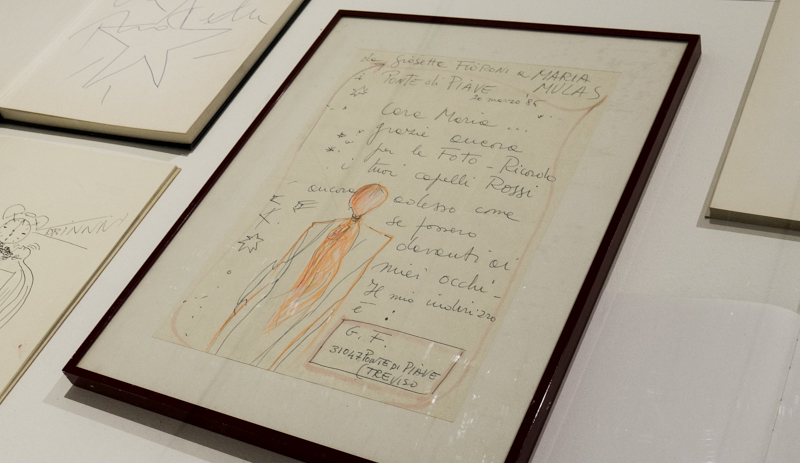 da Giosetta FIORONI a MARIA
PONTE di PIAVE MULAS
20 marzo 85
Cara Maria ...
grazie ancora
per le FOTO - Ricordo
i tuoi capelli Rossi
ancora adesso come
se fossero
davanti ai
miei occhi -
Il mio indirizzo
è :
G. F.
31047 PONTE DI PIAVE
(TREVISO